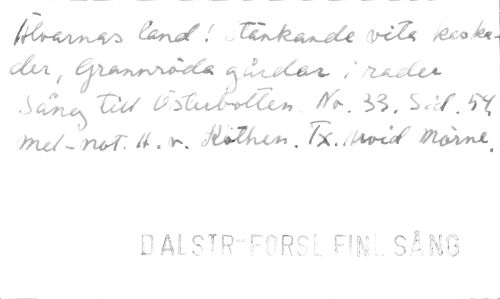 Älvarnas land! Stänkande vita kaska-
der, Grannröda gårdar i rader
Sång till Österbotten. No. 33. Sid. 54,
mel-not. H. v. Köthen. Tx. Arvid Mörne.
DALSTR-FORSL FINL SÅNG